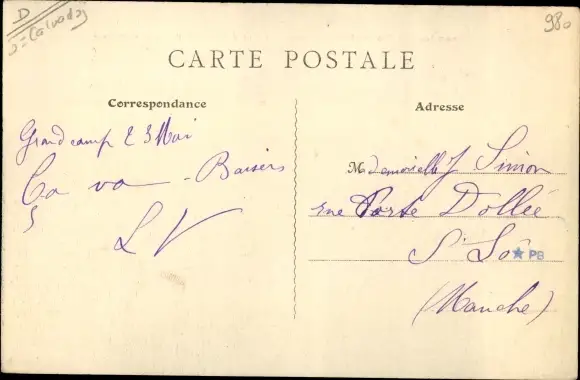 D
= Calvados
980
CARTE POSTALE
Correspondance
Grandcamp 23 Mai
Ça va - Baisers
LV
Adresse
Mademoiselle J Simon
rue Porte Dollée
St Lô
PB
(Manche)